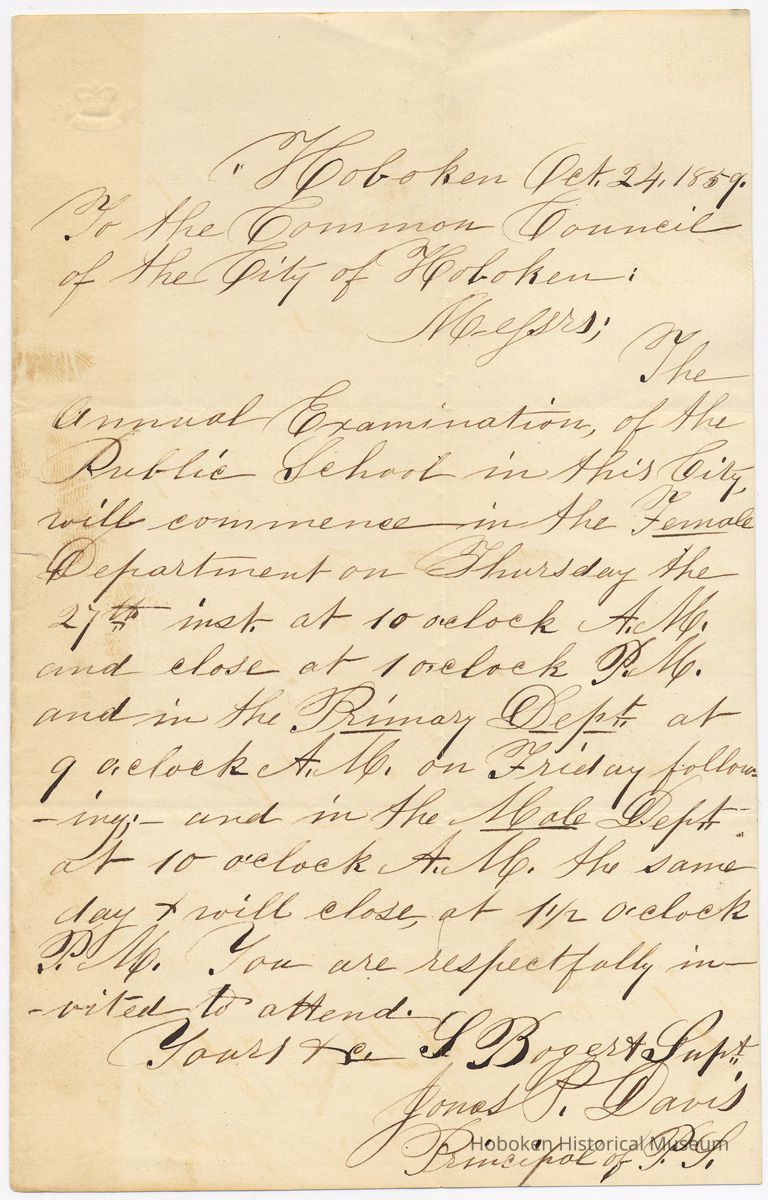 " Hoboken Oct. 24, 1859.
To the Common Council
of the City of Hoboken:
Messrs;
The
Annual Examination, of the
Public School in this City,
will commence in the Female
Department on Thursday the
27th inst. at 10 o'clock A.M.
and close at 1 o'clock P.M.
and in the Primary Dept. at
9 o'clock A.M. on Friday follow-
-ing;- and in the Male Dept
at 10 o'clock A.M. the same
day & will close, at 1 1/2 o'clock
P.M. You are respectfully in-
-vited to attend.
Yours &c. S Bogert Supt.
Jonas P. Davis
Principal of P.S.
Hoboken Historical Museum